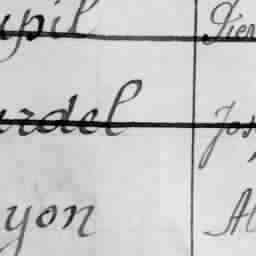 upil Pier
urdel Jos
yon Al